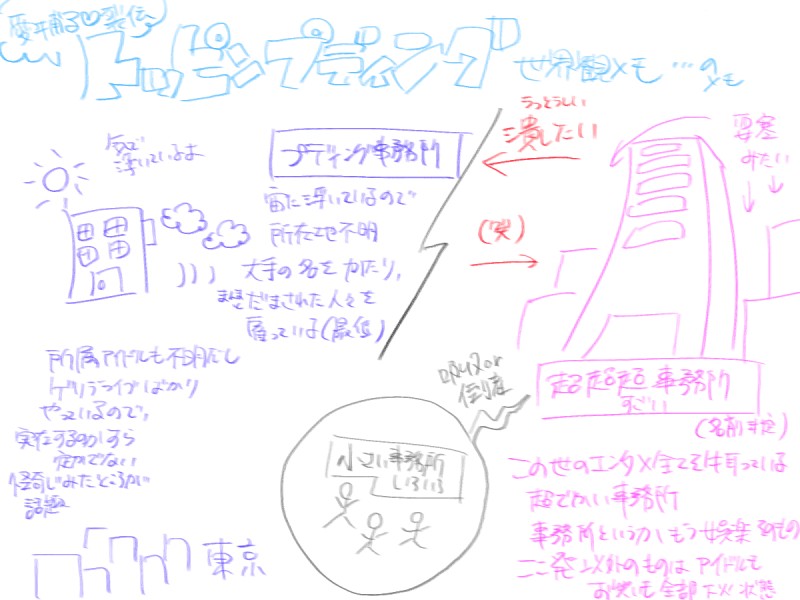 トッピンプディング
世界観メモ…のメモ
気で
浮いているよ
プディング事務所
宙に浮いているので
所在地不明
大手の名をかたり,
まぬけにもだまされた人々を
雇っている(最低)
所属アイドルも不明だし
ゲリラライブばかり
やっているので,
実在するのかすら
定かでない
怪奇じみたところが
話題
東京
うっとうしい
潰したい
(笑)
要塞
みたい
吸収or
倒産
小さい事務所
いろいろ
超超超事務所
すごい
(名前未定)
この世のエンタメ全てを牛耳っている
超でかい事務所
事務所というか,もう娯楽そのもの
ここ発以外のものはアイドルも
お笑いも全部ダメ!状態